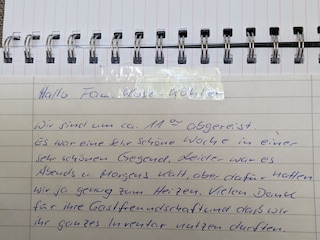 Hallo Fam. Köhler
Wir sind um ca. 11 00 abgereist.
Es war eine sehr schöne Woche in einer
sehr schönen Gegend. Leider war es
Abends u. Morgens kalt, aber dafür hatten
wir ja genug zum Heizen. Vielen Dank
für ihre Gastfreundschaft und daß wir
ihr ganzes Inventar nutzen durften.